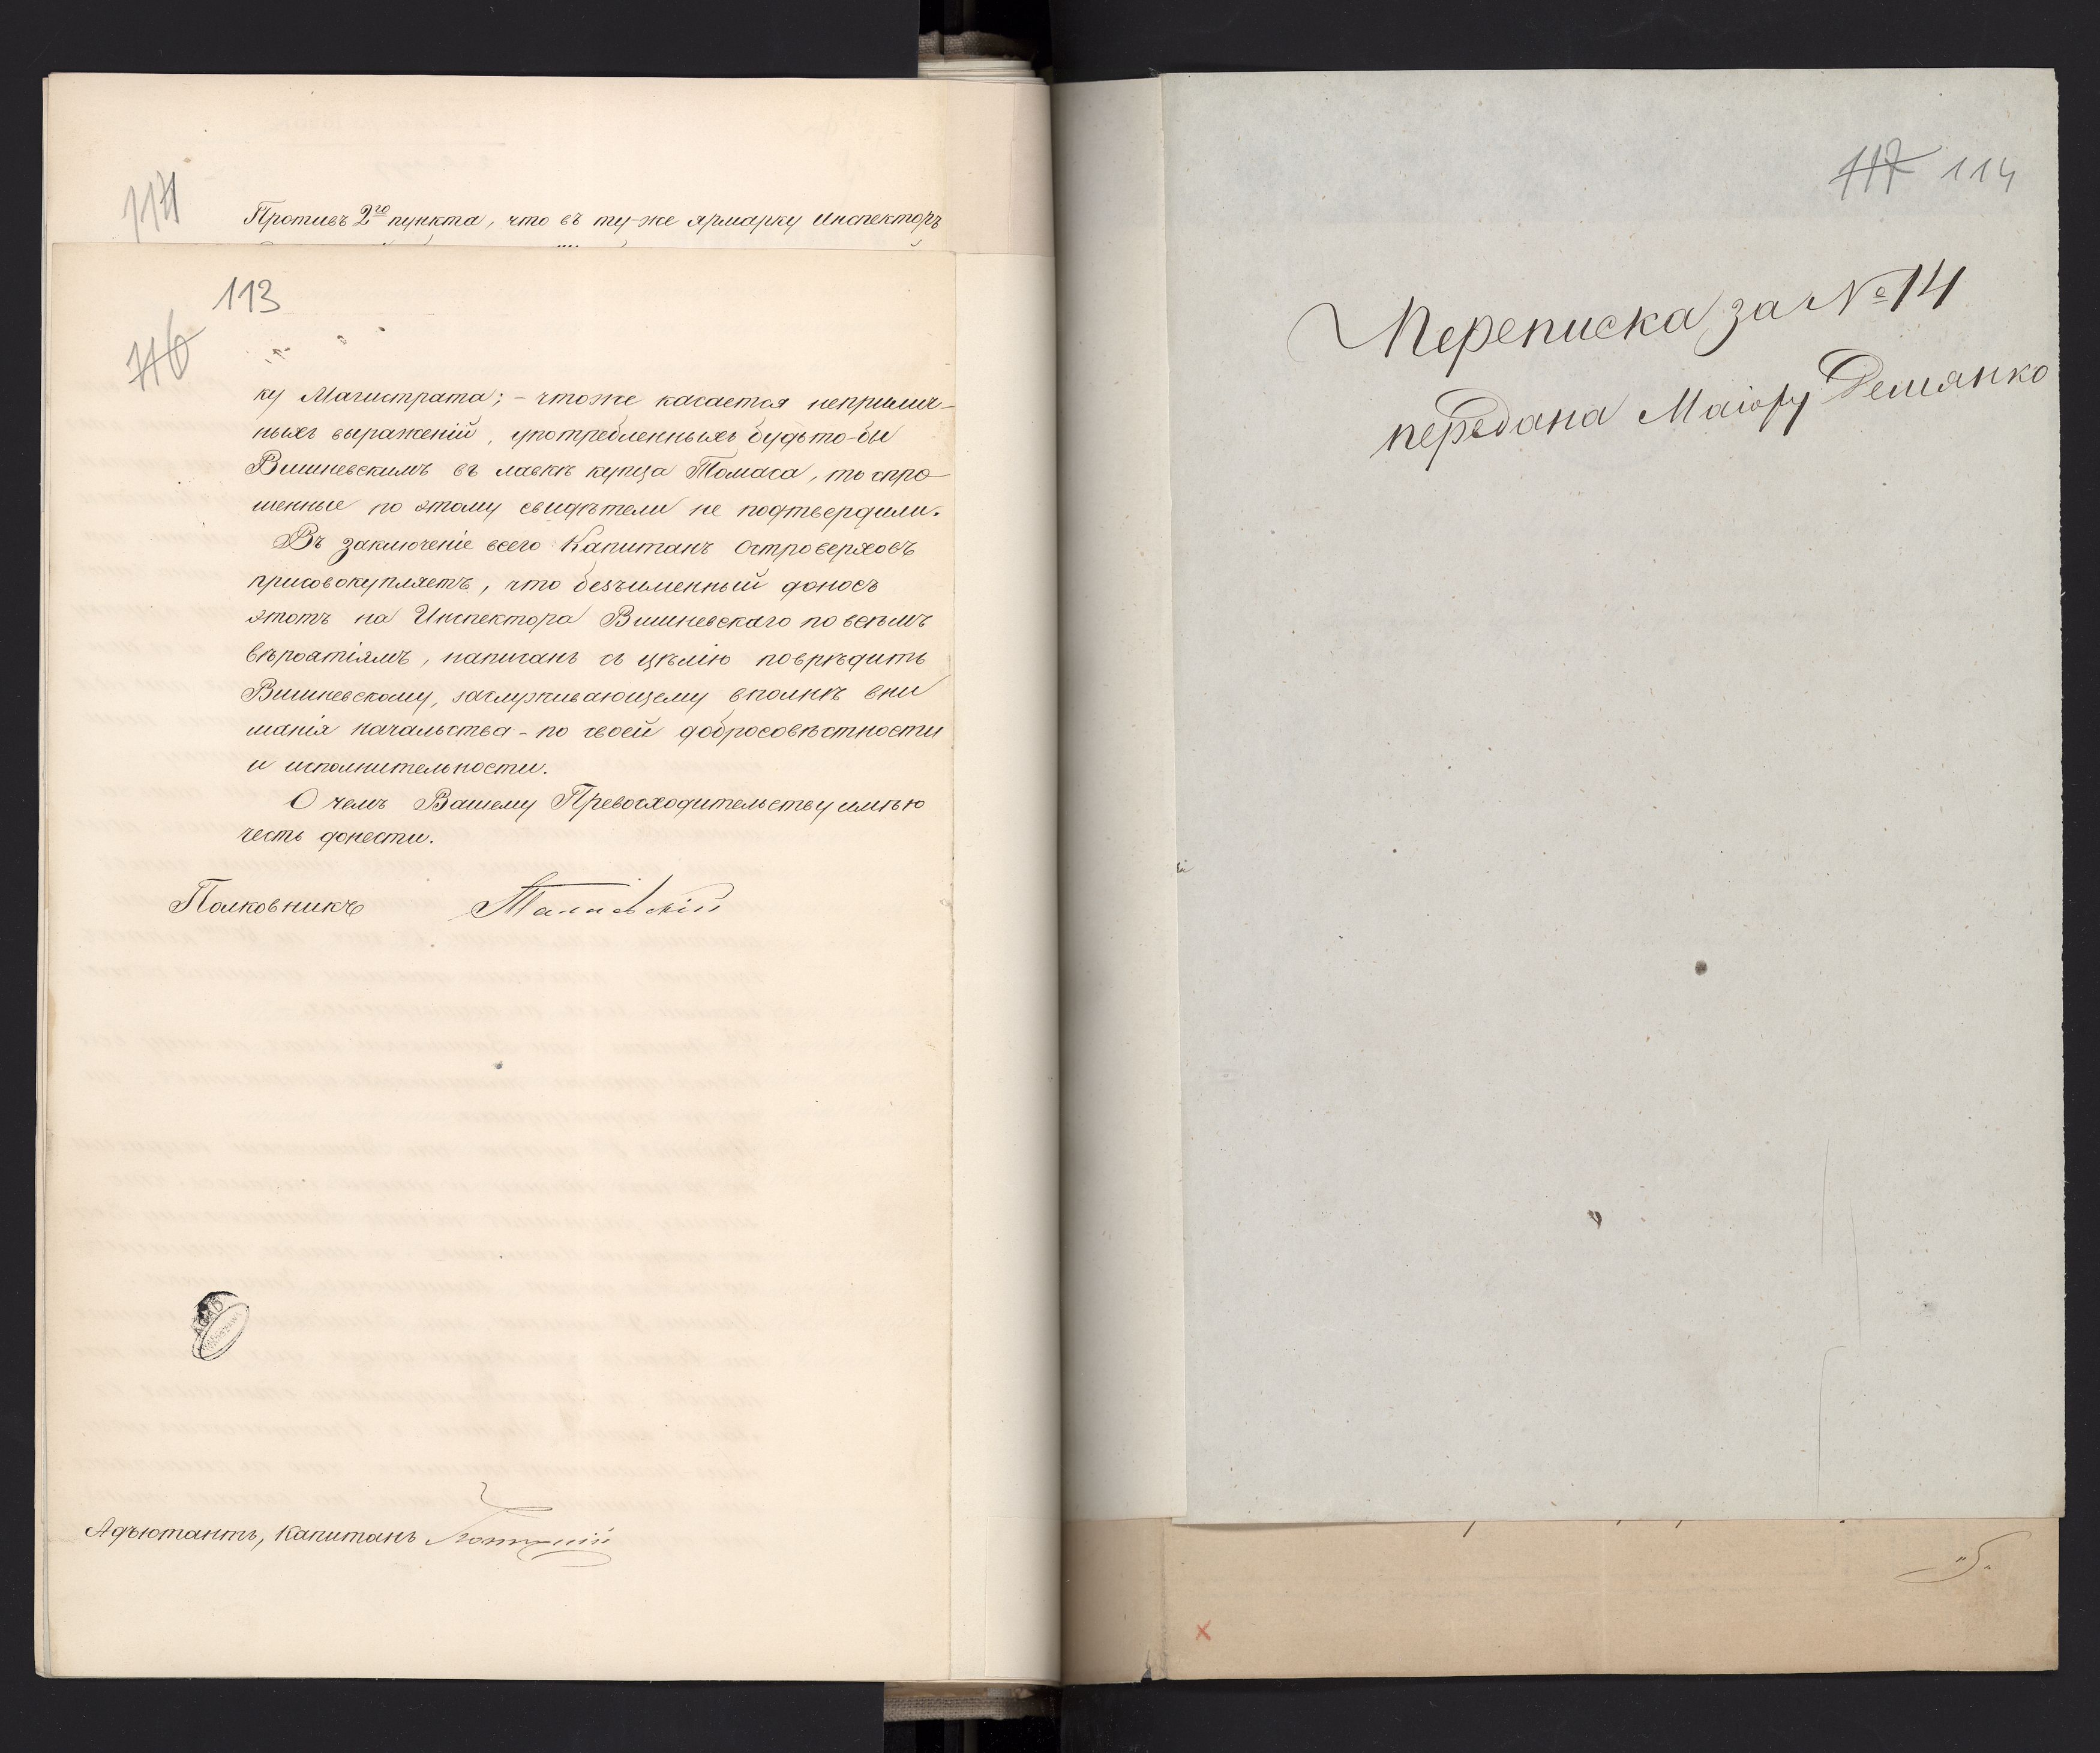 114
Противъ 2го пункта, что въ ту-же ярмарку Инспекторъ
113
116
ку Магистрата; - чтоже касается неприлич-
ныхъ выраженій, употребленныхъ будьто-бы
Вишневскимъ въ лавкѣ купца Томаса, то спро-
шенные по этому свидѣтели не подтвердили.
Въ заключеніе всего Капитанъ Островерховъ
присовокупляетъ, что безъименный доносъ
этотъ на Инспектора Вишневскаго по всѣмъ
вѣроятіямъ, написанъ съ цѣлію повредить
Вишневскому, заслуживающему вполнѣ вни
манія начальства - по своей добросовѣстности
и исполнительности.
О чемъ Вашему Превосходительству имѣю
честь донести.
Полковникъ
AGAD
Адъютантъ, Капитанъ
117 114
Переписка за № 14
передана Маіору Демянко
"5"